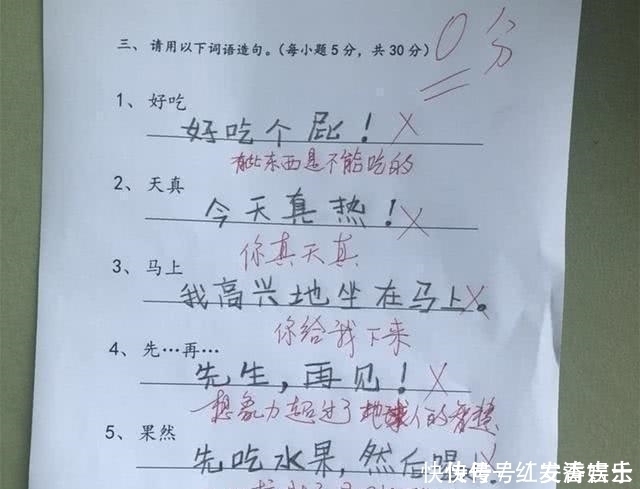 三、请用以下词语造句。(每小题5分，共30分) 0分
1、好吃
好吃个屁！×
有些东西是不能吃的
2、天真
今天真热！×
你真天真
3、马上
我高兴地坐在马上。×
你给我下来
4、先…再…
先生，再见！×
想象力超过了地球人的智慧
5、果然
先吃水果，然后喝
快传号